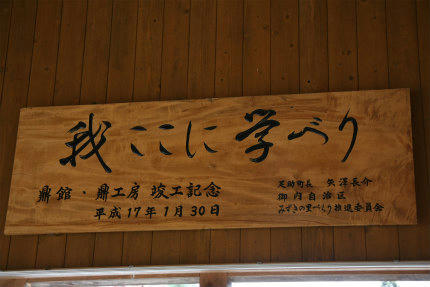 我ここに学べり
鼎館・鼎工房 竣工記念
平成17年1月30日
足助町長 矢澤長介
御内自治区
みずきの里づくり推進委員会